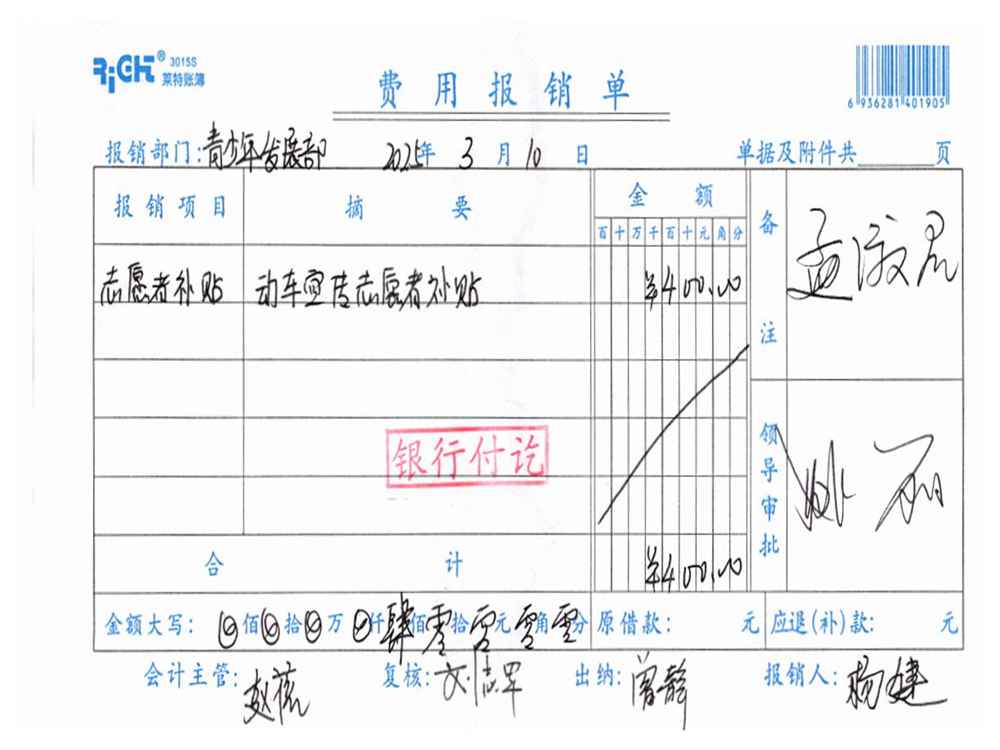 RiGHT® 3015S
莱特账簿
费用报销单
6 936281 401905
报销部门:青少年发展部 2025年 3 月 10 日 单据及附件共 页
报销项目 摘要 金额 备注
百 十 万 千 百 十 元 角 分
志愿者补贴 动车宣传志愿者补贴 ¥400.00
银行付讫
领导审批
合计 ¥400.00
金额大写: 佰 拾 万 仟 肆 佰 零 拾 零 元 零 角 零 分 原借款: 元 应退(补)款: 元
会计主管: 复核: 出纳:曾静 报销人:杨健